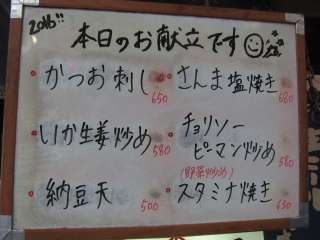 2016!!
本日のお献立です
かつお刺し
650
さんま塩焼き
680
いか生姜炒め
580
チョリソー
ピーマン炒め
(野菜炒め)
580
納豆天
500
スタミナ焼き
630